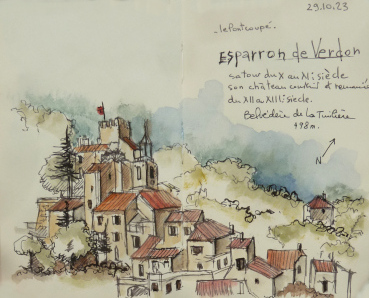 29.10.23
le Pont coupé.
Esparron de Verdon
sa tour du X au XI: siècle
son château construit et remanié
du XII a XIII siecle.
Belvédère de la Tuilière
498m.
N